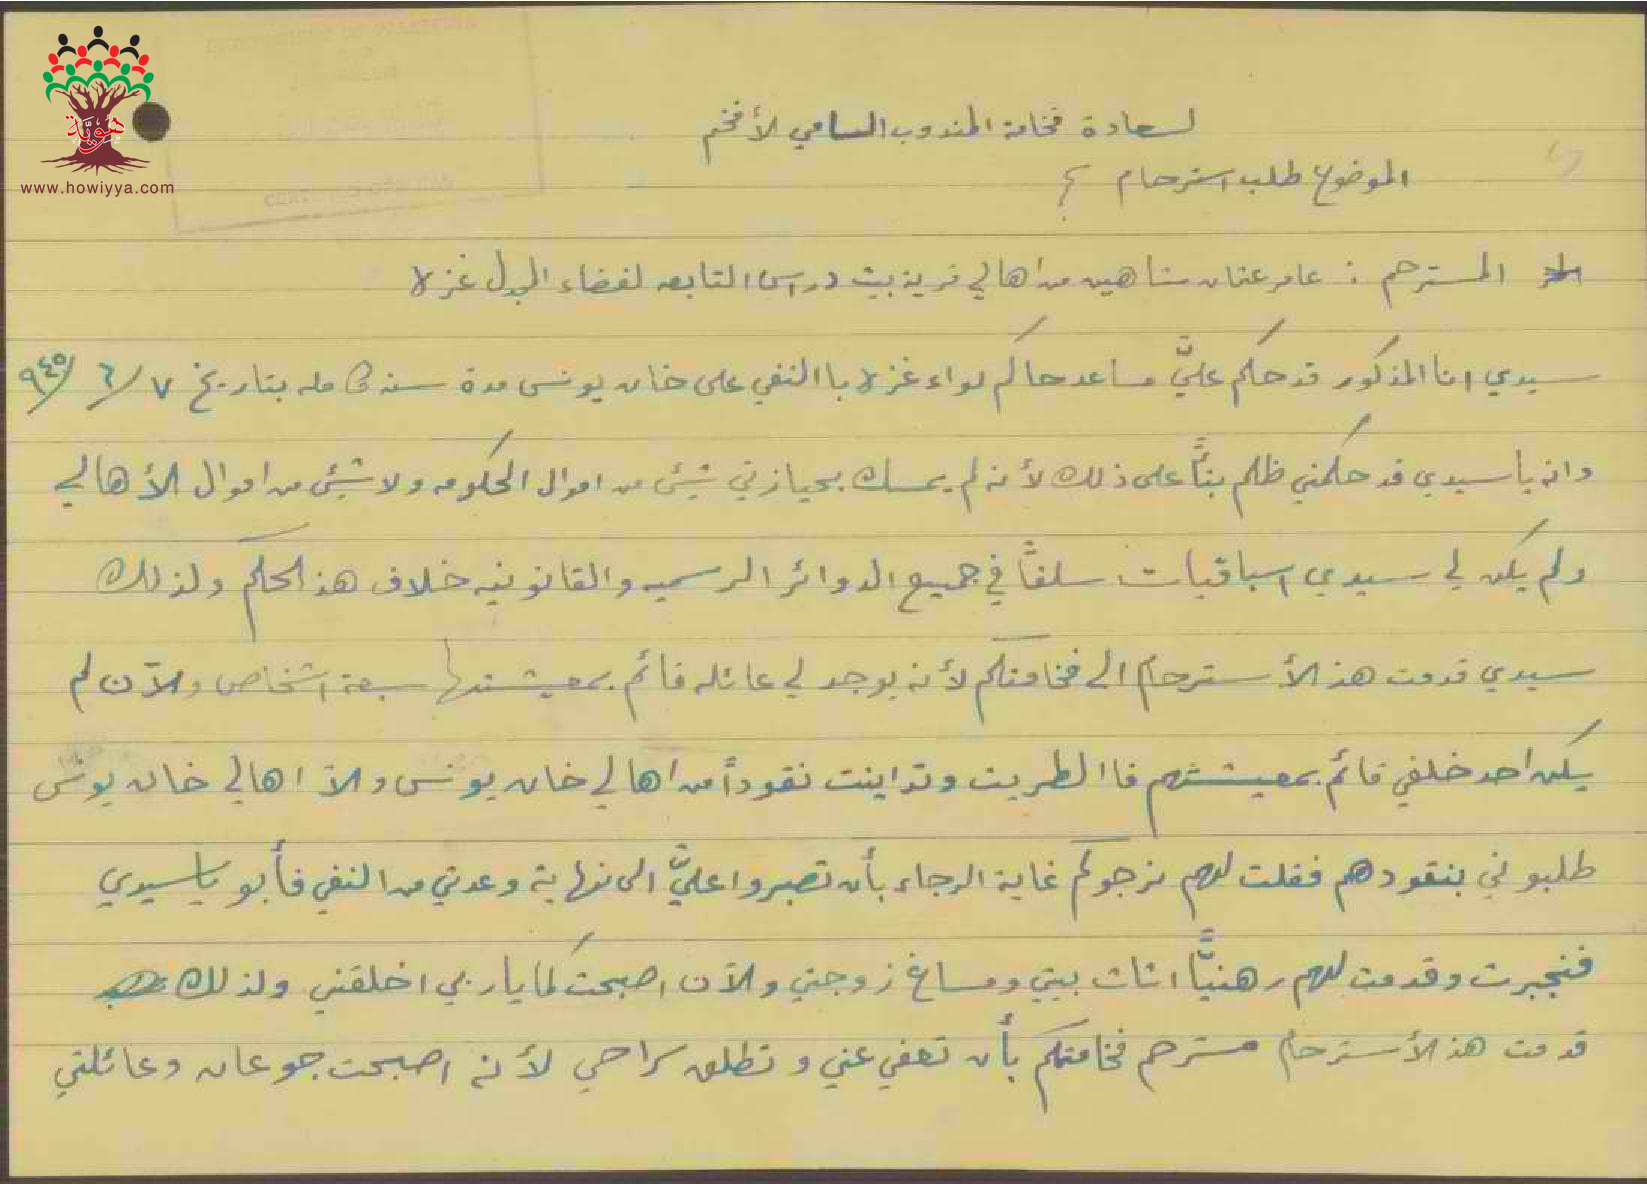 هوية
www.howiyya.com
لسعادة فخامة المندوب السامي الأفخم
الموضوع طلب استرحام
المسترحم : عامر عثمان شاهين من اهالي قرية بيت دراس التابعه لقضاء المجدل غزه
سيدي انا المذكور قد حكم عليَّ مساعد حاكم لواء غزه باالنفي على خان يونس مدة سنه كامله بتاريخ ٧/٦/٩٤٥
وانه ياسيدي قد حكمني ظلم بنتًّا على ذلك لأنه لم يمسك بحيازتي شيئ من اموال الحكومه ولا شيئ من اموال الأهالي
ولم يكن لي سيدي اسباقيات سلفًا في جميع الدوائر الرسميه والقانونيه خلاف هذ الحكم ولذلك
سيدي قدمت هذ الأسترحام الى فخامتكم لأنه يوجد لي عائله قائم بمعيشتها سبعة اشخاص والآن لم
يكن احد خلفي قائم بمعيشتهم فاالطريت وتداينت نقوداً من اهالي خان يونس والآ اهالي خان يونس
طلبوني بنقودهم فقلت لهم نرجوكم غاية الرجاء بأن تصبروا عليَّ الى نهاية وعدتي من النفي فأبو ياسيدي
فنجبرت وقدمت لهم رهنيًّا اثاث بيتي ومساغ زوجتي والآن اصبحت كما ياربي اخلقتني ولذلك
قدمت هذ الأسترحام مسترحم فخامتكم بأن تعفي عني وتطلق سراحي لأنه اصبحت جوعان وعائلتي